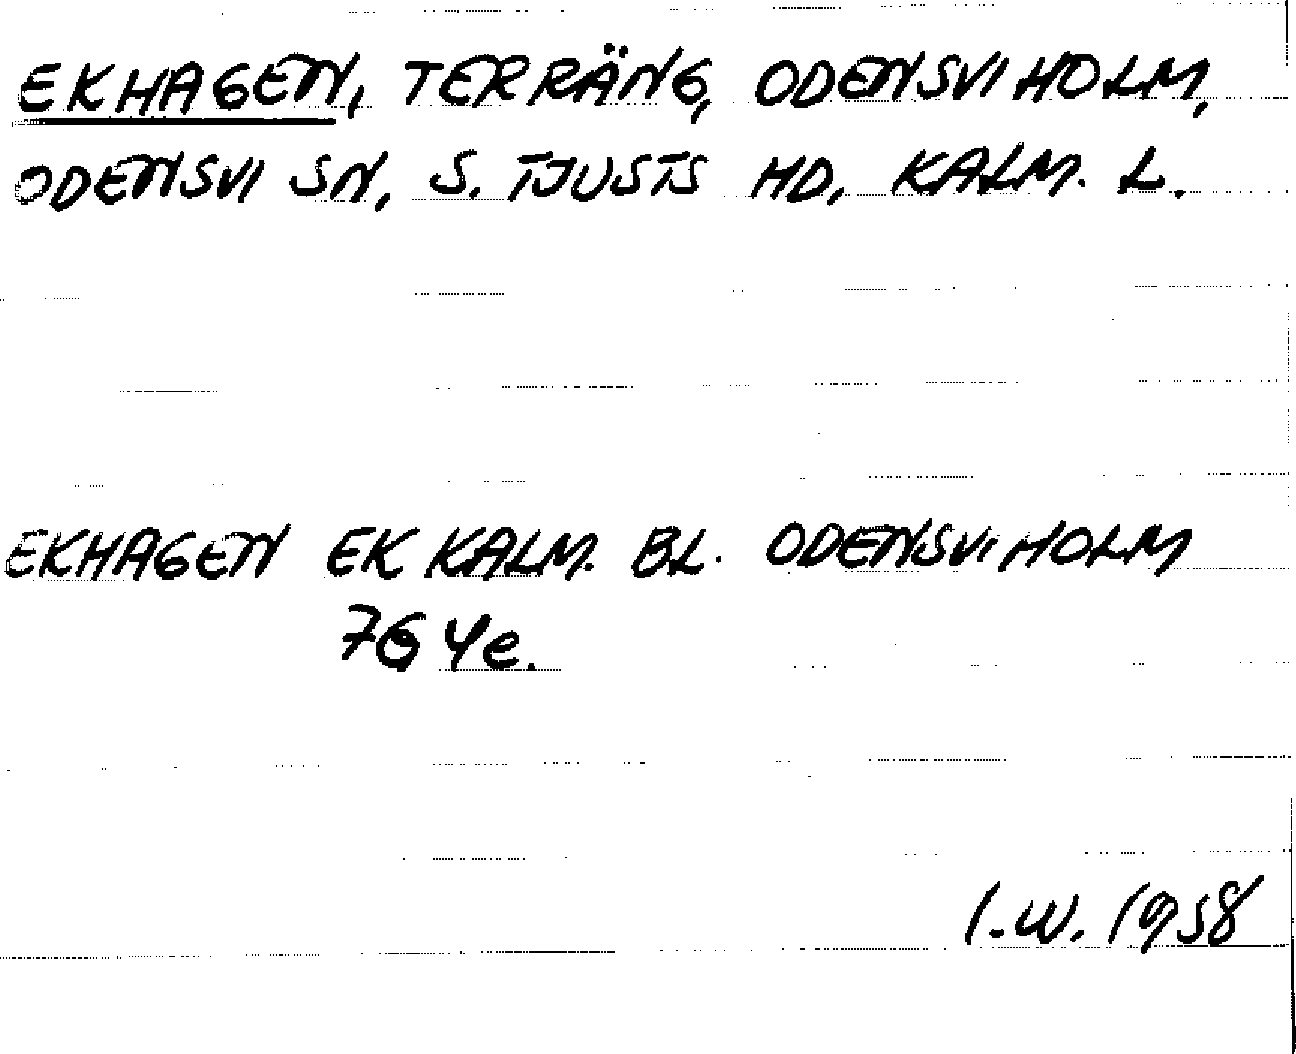 EKHAGEN, TERRÄNG, ODENSVIHOLM,
ODENSVI SN, S. TJUSTS HD, KALM. L.
EKHAGEN EK KALM. BL. ODENSVIHOLM
7G 4e.
I.W. 1958